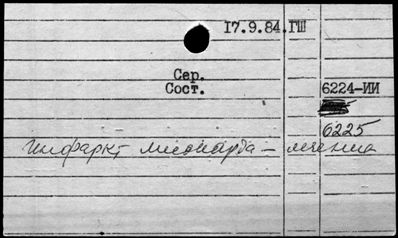 17.9.84.ГШ
Сер.
Сост.
6224-ИИ
6225
Инфаркт миокарда – лечение